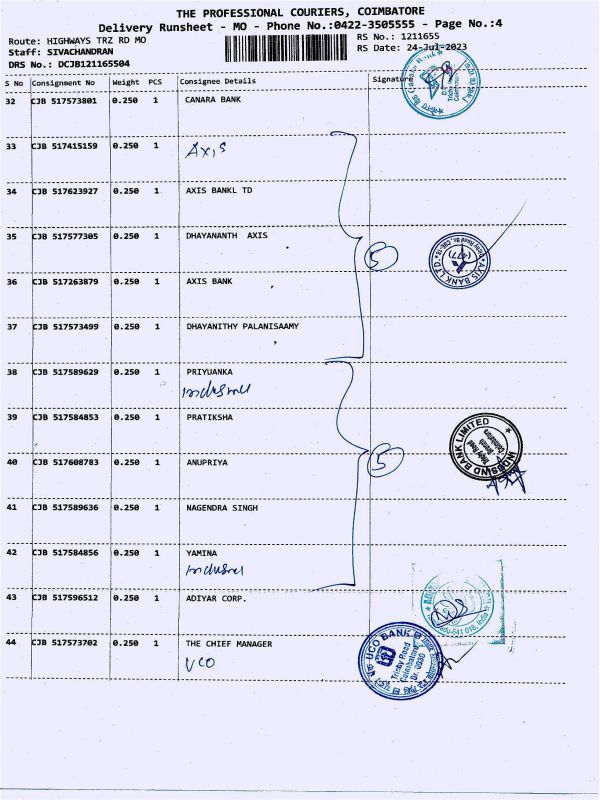 THE PROFESSIONAL COURIERS, COIMBATORE
Delivery Runsheet - MO - Phone No.:0422-3505555 - Page No.:4
Route: HIGHWAYS TRZ RD MO
RS No.: 1211655
Staff: SIVACHANDRAN
RS Date: 24-Jul-2023
DRS No.: DCJB121165504
S No Consignment No Weight PCS Consignee Details Signature
32 CJB 517573801 0.250 1 CANARA BANK
33 CJB 517415159 0.250 1 Axis
34 CJB 517623927 0.250 1 AXIS BANKL TD
35 CJB 517577305 0.250 1 DHAYANANTH AXIS
5
AXIS BANK LTD.
(477)
36 CJB 517263879 0.250 1 AXIS BANK
37 CJB 517573499 0.250 1 DHAYANITHY PALANISAAMY
38 CJB 517589629 0.250 1 PRIYUANKA
39 CJB 517584853 0.250 1 PRATIKSHA
INDUSIND BANK LIMITED
Trichy Road
Branch
Coimbatore
40 CJB 517608783 0.250 1 ANUPRIYA
5
41 CJB 517589636 0.250 1 NAGENDRA SINGH
42 CJB 517584856 0.250 1 YAMINA
43 CJB 517596512 0.250 1 ADIYAR CORP.
44 CJB 517573702 0.250 1 THE CHIEF MANAGER
UCO
UCO BANK
Trichy Road
Coimbatore